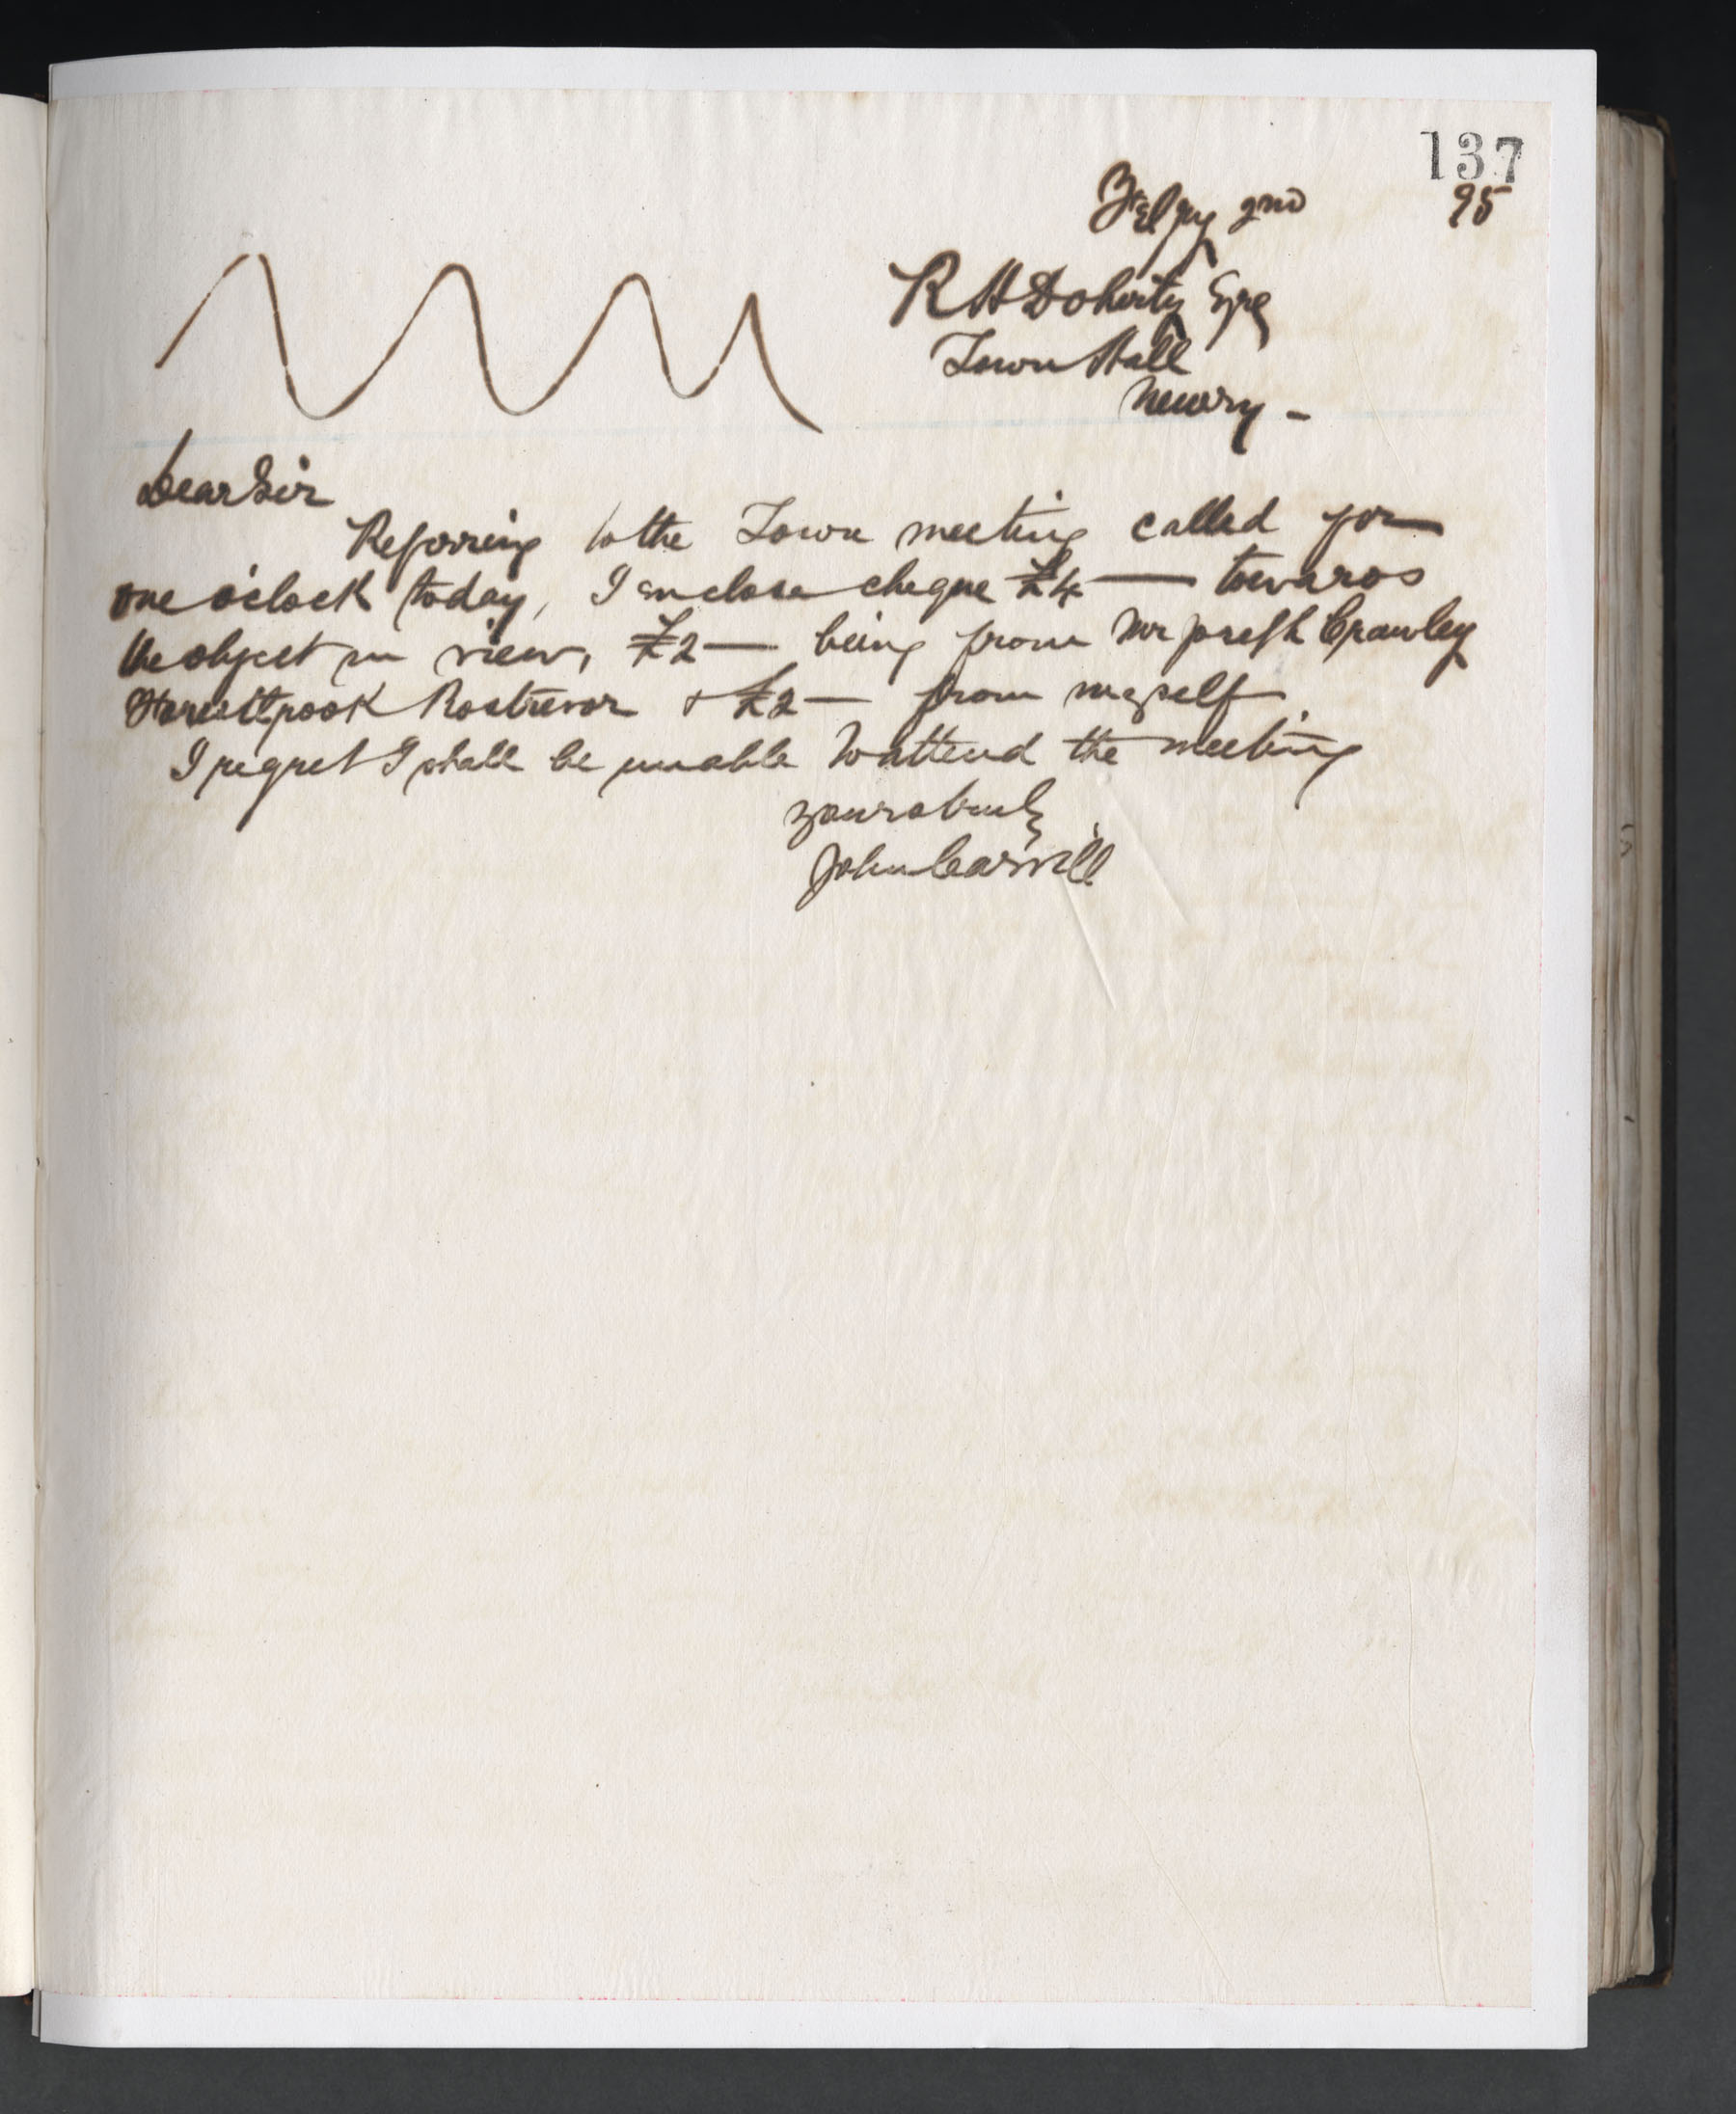 137
Feby 2nd 95
R H Doherty Esqe
Town Hall
Newry -
Dear Sir
Referring to the Town meeting called for
one o'clock today, I enclose cheque £4 — towards
the object in view, £2 — being from Mr Joseph Crawley
Rostrevor & £2 — from myself
I regret I shall be unable to attend the meeting
yours truly
John Carvill